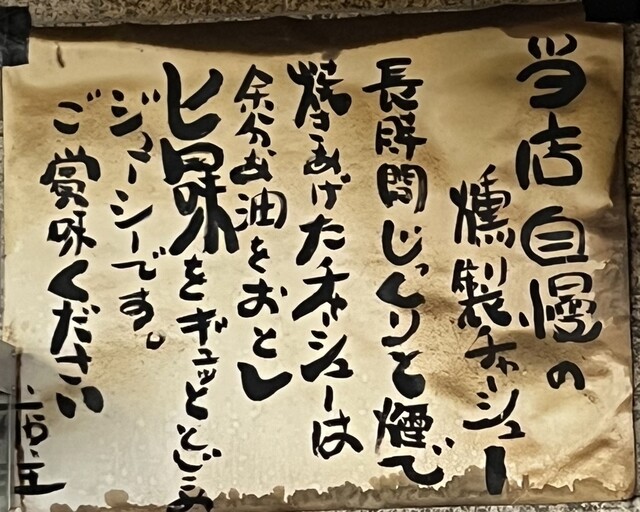 当店自慢の
燻製チャーシュー
長時間じっくりと煙で
焼きあげたチャーシューは
余分な油をおとし
旨味をギュッととじこめ
ジューシーです。
ご賞味ください
店主